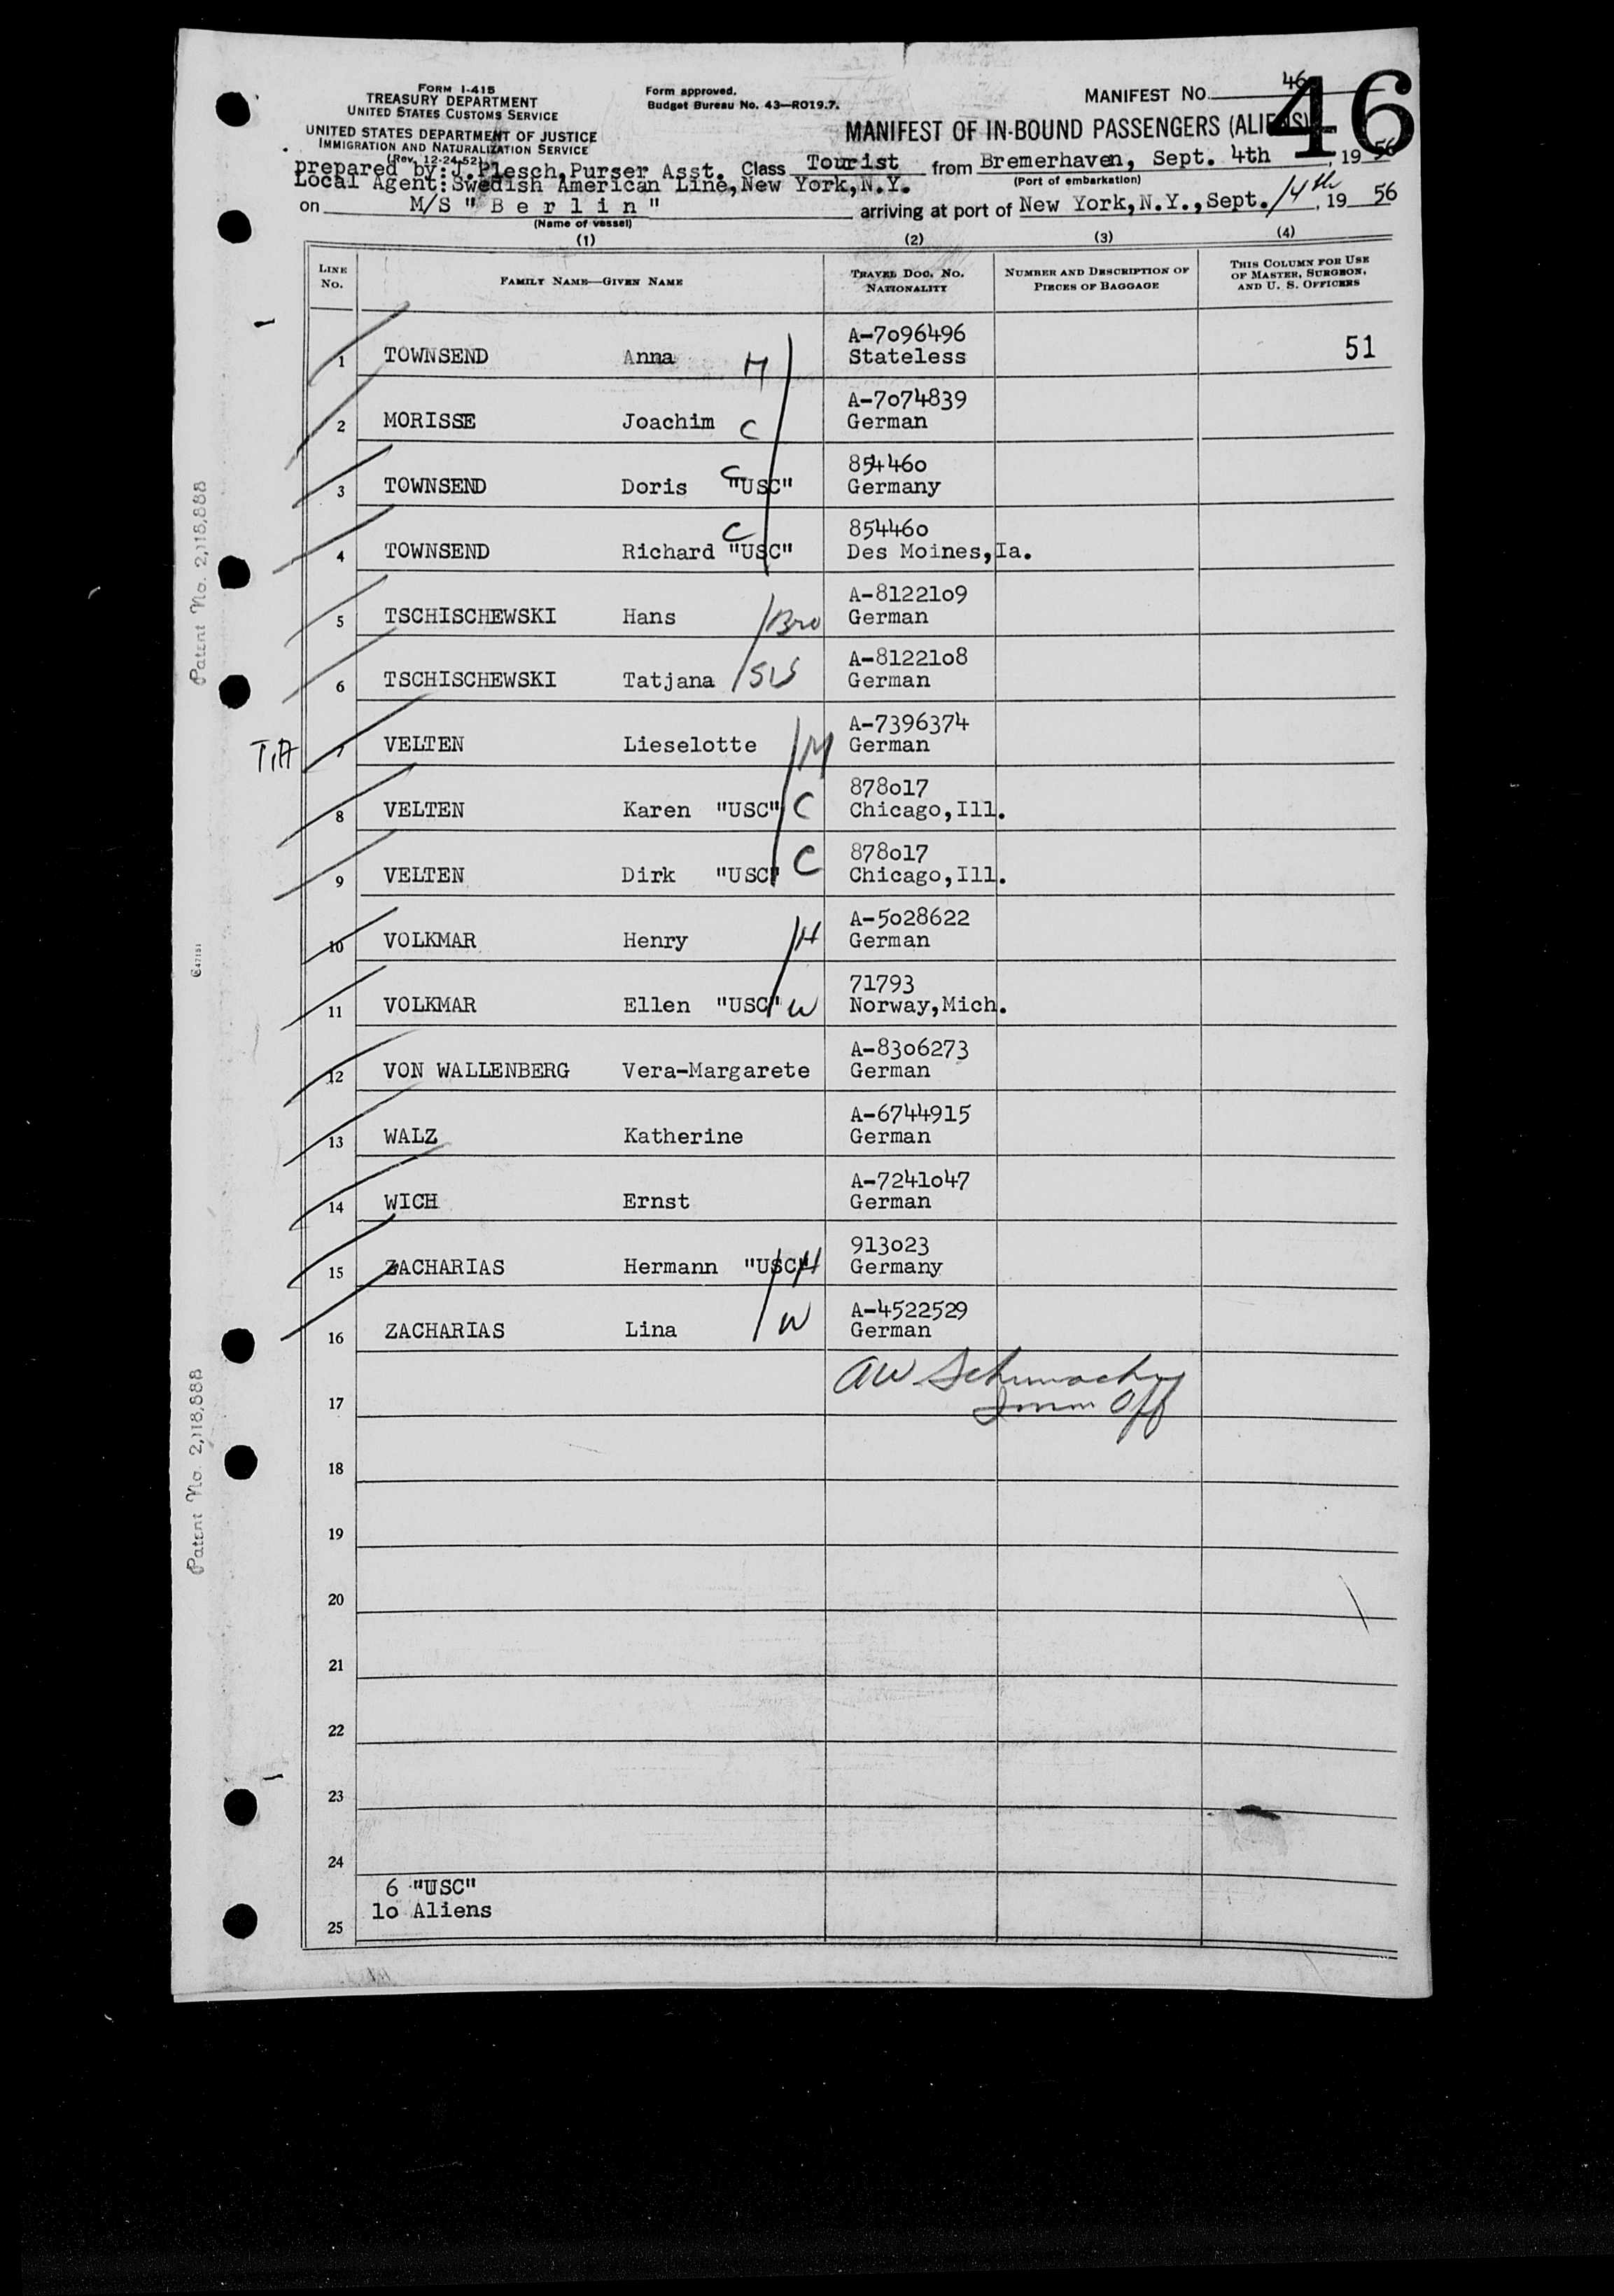 FORM I-415
TREASURY DEPARTMENT
UNITED STATES CUSTOMS SERVICE
UNITED STATES DEPARTMENT OF JUSTICE
IMMIGRATION AND NATURALIZATION SERVICE
(Rev. 12-24-52)
Form approved.
Budget Bureau No. 43—RO19.7.
MANIFEST NO. 46
46
MANIFEST OF IN-BOUND PASSENGERS (ALIENS)
prepared by: J.Plesch, Purser Asst. Class Tourist from Bremerhaven, Sept. 4th, 1956
(Port of embarkation)
Local Agent: Swedish American Line, New York, N.Y.
on M/S "Berlin" arriving at port of New York, N.Y., Sept. 14th, 1956
(Name of vessel)
(1) (2) (3) (4)
LINE NO. FAMILY NAME—GIVEN NAME TRAVEL DOC. NO. NATIONALITY NUMBER AND DESCRIPTION OF PIECES OF BAGGAGE THIS COLUMN FOR USE OF MASTER, SURGEON, AND U. S. OFFICERS
A-7096496
1 TOWNSEND Anna M Stateless 51
A-7074839
2 MORISSE Joachim C German
854460
3 TOWNSEND Doris C "USC" Germany
854460
4 TOWNSEND Richard C "USC" Des Moines, Ia.
A-8122109
5 TSCHISCHEWSKI Hans Bro German
A-8122108
6 TSCHISCHEWSKI Tatjana SIS German
A-7396374
7 VELTEN Lieselotte M German
878017
8 VELTEN Karen "USC" C Chicago, Ill.
878017
9 VELTEN Dirk "USC" C Chicago, Ill.
A-5028622
10 VOLKMAR Henry H German
71793
11 VOLKMAR Ellen "USC" W Norway, Mich.
A-8306273
12 VON WALLENBERG Vera-Margarete German
A-6744915
13 WALZ Katherine German
A-7241047
14 WICH Ernst German
913023
15 ZACHARIAS Hermann "USC" H Germany
A-4522529
16 ZACHARIAS Lina W German
AW Schumacher
Imm Off
17
18
19
20
21
22
23
24
6 "USC"
10 Aliens
25
Patent No. 2,118,888
Patent No. 2,118,888